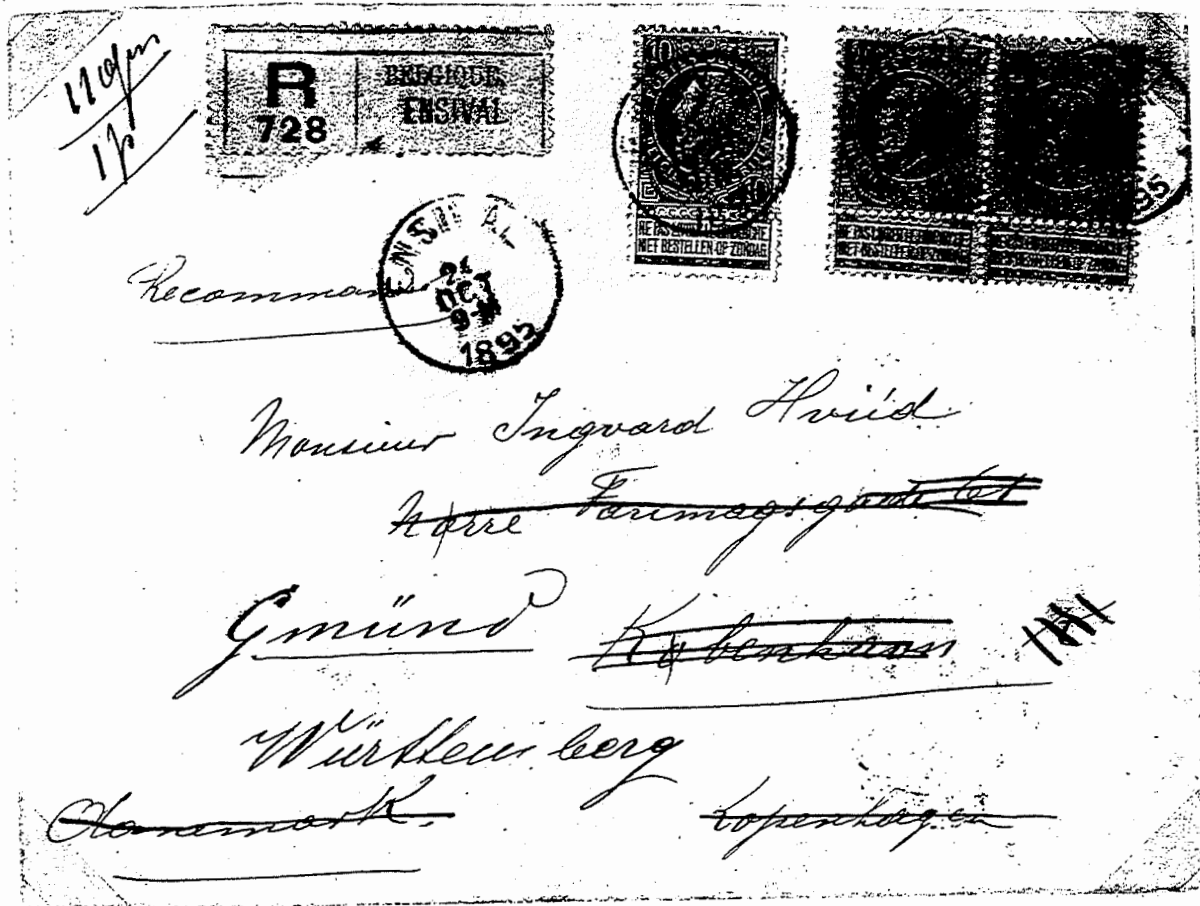 R
728
BELGIQUE
ENSIVAL
10
10
NE PAS LIVRER LE DIMANCHE
NIET BESTELLEN OP ZONDAG
NE PAS LIVRER LE DIMANCHE
NIET BESTELLEN OP ZONDAG
NE PAS LIVRER LE DIMANCHE
NIET BESTELLEN OP ZONDAG
ENSIVAL
OCT
1895
Monsieur Ingvard Hviid
Nørre Farimagsgade
Gmünd København
Württemberg
Danemark. Kopenhagen